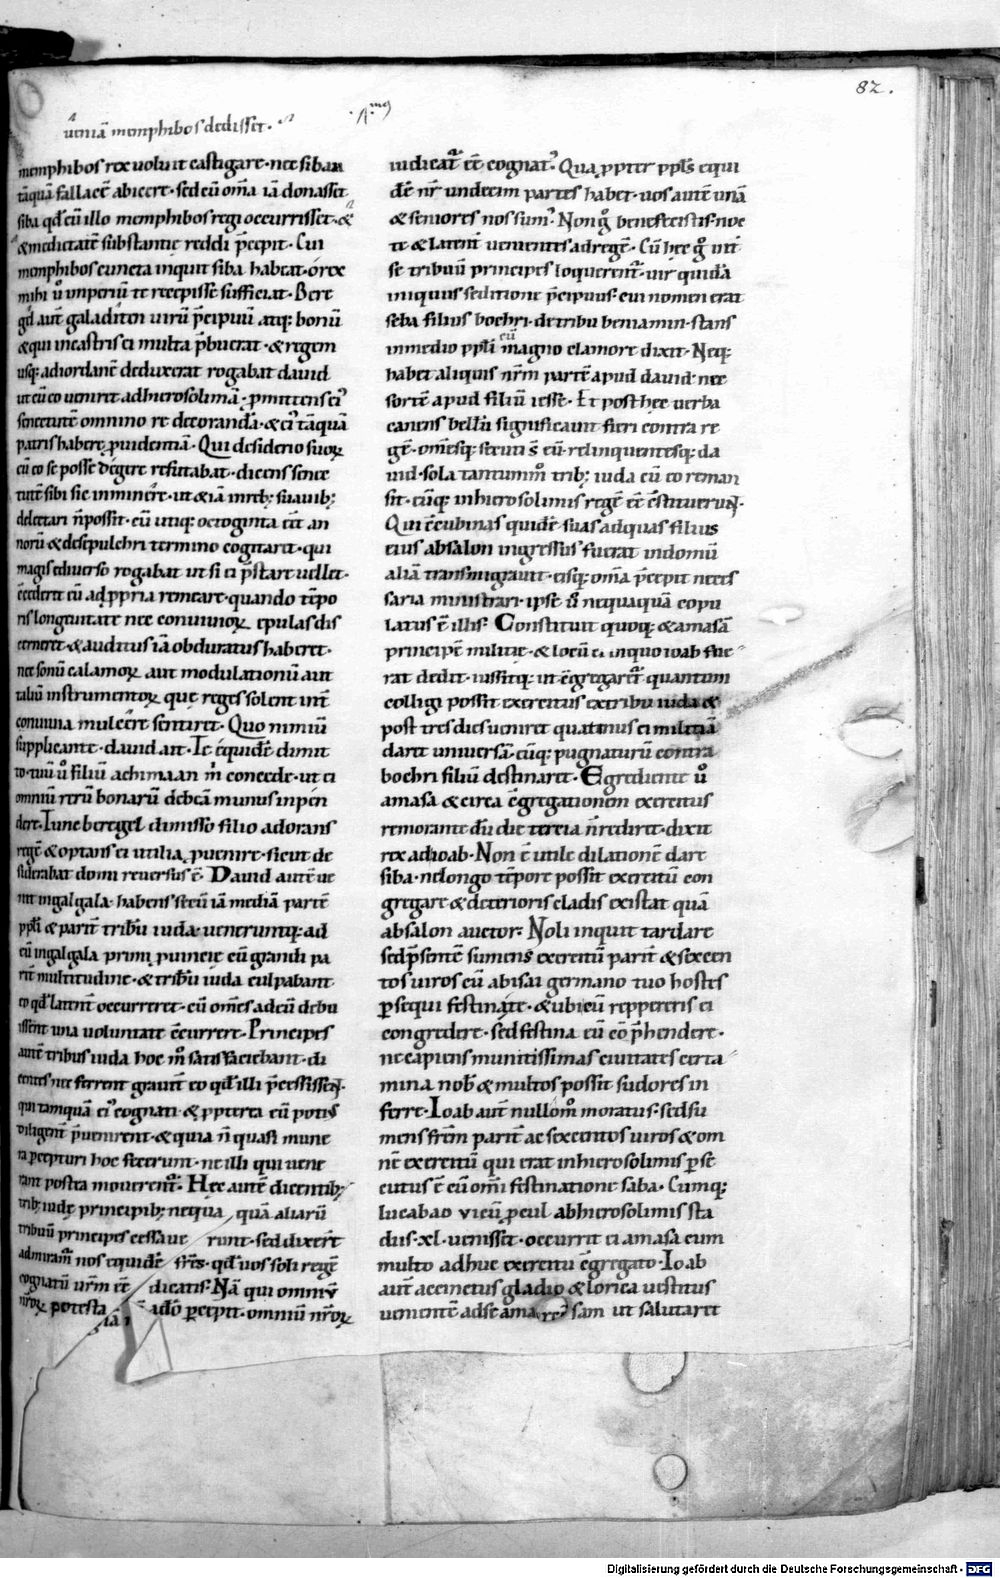 82.
ueniā memphibos dedisset.
memphibos rex uoluit castigare· nec sibam
tāquā fallacē abicere· sed cū om̄a iā donasset
siba qđ cū illo memphibos regi occurrisset· &
& medietatē substantie reddi p̄cepit· Cui
memphibos cuncta inquit siba habeat· o rex
mihi ū imperiū te recepisse sufficiat· Berc
gel aut̄ galaditen uirū p̄cipuū atq; bonū
& qui in castris ei multa p̄buerat· & regem
usq; ad iordanē deduxerat rogabat dauid
ut cū eo ueniret ad hierosolimā· p̄mittens ei
senectutē omnino se decorandā· & ei tāquā
patris habere p̱uidentiā· Qui desiderio suoꝝ
cū eo se posse degere refutabat· dicens senec
tutē sibi sic inminere· ut & iā in reb; suauib;
delectari n̄ possit· cū utiq; octoginta eēt an
norū & de sepulchri termino cogitarit· qui
magis e diuerso rogabat ut si ei p̄stare uellet·
c̄cederet cū ad p̱pria remeare· quando tēpo
ris longeuitate nec conuiuioꝝ epulas dis
cerneret· & auditus iā obduratus haberet·
nec sonū calamoꝝ aut modulationū aut
taliū instrumentoꝝ quę reges solent int̄
conuiuia mulcere sentiret· Quo nimiū
supplicante· dauid ait· Te equidē dimit
to· tuū ū filiū achimaan m̄ concede· ut ei
omniū rerū bonarū debeā munus inpen
dere· Tunc bercgel dimisso filio adorans
regē & optans ei utilia p̱uenire· sicut de
siderabat domi reuersus ē· Dauid autē ue
nit in galgala· habens secū iā mediā partē
pp̄li & parit̄ tribū iuda· uenerunt q; ad
eū in galgala primi p̱uincie cū grandi pa
rit̄ multitudine· & tribū iuda culpabant
eo qđ latent̄ occurreret· cū om̄es ad eū debu
issent una uoluntate c̄currere· Principes
autē tribus iuda hoc m̊ satisfaciebant· di
centes ne ferrent grauit̄ eo qđ illi p̄cessissent·
qui tamquā ei cognati & p̱pterea cū potius
diligent̄ p̄uenirent· & quia n̄ quasi mune
ra p̱cepturi hoc fecerunt· ne illi qui uene
rant postea mouerent̄· Hec autē dicentib;
trib; iudę principib; nequa quā aliarū
tribuū principes cessaue runt· sed dixer̄t
admiram̄ nos equidē fr̄s· qđ uos soli regē
cognatū ur̄m eē dicatis· Nā qui omniū
nr̄oꝝ potesta a dō p̱cepit· omniū nr̄oꝝ
iudicat̄ eē cognat· Qua p̱pter pp̄ls equi
dē nr̄ undecim partes habet· uos autē unā
& seniores nos sum· Non ḡ benefecistis· noc
te & latent̄ uenientes ad regē· Cū hec ḡ int̄
se tribuū principes loquerent̄· uir quidā
iniquus seditione p̄cipuus· cui nomen erat
seba filius bochri· de tribu beniamin· stans
in medio pp̄li cū magno clamore dixit· Neq;
habet aliquis nr̄m partē apud dauid· nec
sortē apud filiū iesse· Et post hec uerba
canens bellū significauit fieri contra re
gē· om̄esq; secuti s̄ eū· relinquentesq; da
uid· sola tantummō trib; iuda cū eo reman
sit· eūq; in hierosolimis regē eē c̄stituerunt·
Qui c̄cubinas quidē suas ad quas filius
eius absalon ingressus fuerat in domū
aliā transmigrauit· eisq; om̄a p̄cepit neces
saria ministrari· ipse ū nequaquā copu
latus ē illis· Constituit quoq; & amasā
principē militię· & locū ei in quo ioab fue
rat dedit· iussitq; ut c̄gregaret̄ quantum
colligi possit exercitus ex tribu iuda &
post tres dies ueniret quatenus ei militiā
daret uniuersā· eūq; pugnaturū contra
bochri filiū destinaret· Egrediente ū
amasa & circa c̄gregationem exercitus
remorante dū die tercia n̄ rediret· dixit
rex ad ioab· Non ē utile dilationē dare
siba· ne longo tēpore possit exercitū con
gregare & deterioris cladis existat quā
absalon auctor· Noli inquit tardare
sed p̄sentē sumens exercitū parit̄ & sexcen
tos uiros cū abisai germano tuo hostes
p̱sequi festinate· & ubi eū reppereris ei
congredere· sed festina eū cōp̄hendere·
ne capiens munitissimas ciuitates certa
mina nob̄ & multos possit sudores in
ferre· Ioab aut̄ nullom̊ moratus· sed su
mens fr̄em parit̄ ac sexcentos uiros & om
nē exercitū qui erat in hierosolimis p̱se
cutus ē cū omī festinatione saba· Cumq;
in cabao uicū p̱cul ab hierosolimis sta
dus· xl· uenisset· occurrit ei amasa cum
multo adhuc exercitu c̄gregato· Ioab
aut̄ accinctus gladio & lorica uestitus
uenientē ad se ama sam ut salutaret
Digitalisierung gefördert durch die Deutsche Forschungsgemeinschaft · DFG